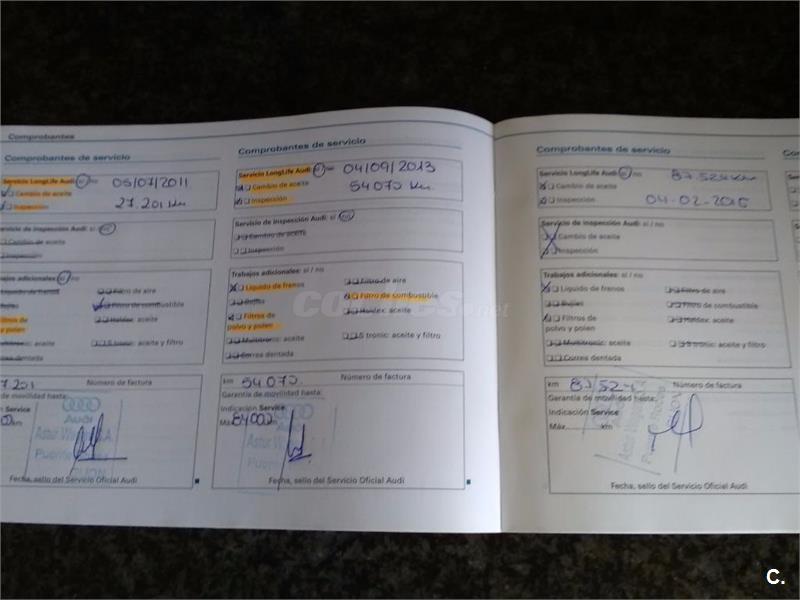 Comprobantes
Comprobantes de servicio
Servicio LongLife Audi: si / no 05/07/2011
Cambio de aceite
Inspección 27.201 km
Servicio de inspección Audi: si / no
Cambio de aceite
Inspección
Trabajos adicionales si / no
Líquido de frenos Filtro de aire
Bujías Filtro de combustible
Filtros de Haldex: aceite
polvo y polen
Multitronic: aceite S tronic: aceite y filtro
Correa dentada
7.201 Número de factura
Garantía de movilidad hasta:
Indicación Service
km
Audi
Astur
Puente
GIJON
Fecha, sello del Servicio Oficial Audi
Comprobantes de servicio
Servicio LongLife Audi: si / no 04/09/2013
Cambio de aceite 54070 km.
Inspección
Servicio de inspección Audi: si / no
Cambio de aceite
Inspección
Trabajos adicionales: si / no
Líquido de frenos Filtro de aire
Bujías Filtro de combustible
Filtros de Haldex: aceite
polvo y polen
Multitronic: aceite S tronic: aceite y filtro
Correa dentada
km 54070. Número de factura
Garantía de movilidad hasta:
Indicación Service
Máx. 84000 km
Audi
Astur
Puente
Fecha, sello del Servicio Oficial Audi
Comprobantes de servicio
Servicio LongLife Audi: si / no
Cambio de aceite
Inspección
Servicio de inspección Audi: si / no
Cambio de aceite
Inspección
Trabajos adicionales: si / no
Líquido de frenos Filtro de aire
Bujías Filtro de combustible
Filtros de Haldex: aceite
polvo y polen
Multitronic: aceite S tronic: aceite y filtro
Correa dentada
km Número de factura
Garantía de movilidad hasta:
Indicación Service
Máx. km
Fecha, sello del Servicio Oficial Audi
coches.net
C.